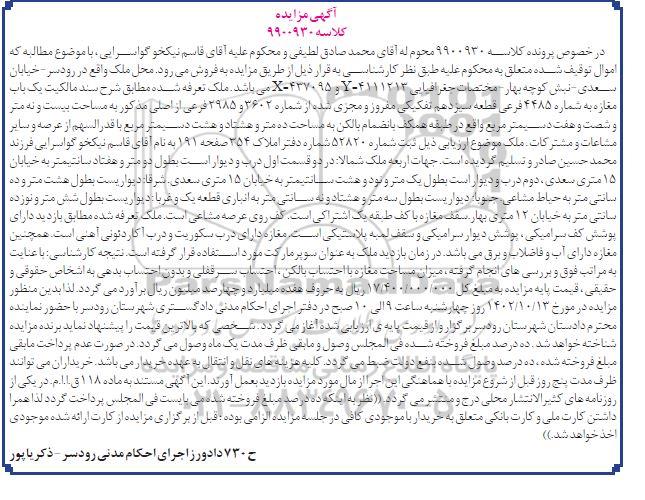 آگهی مزایده
کلاسه ۹۹۰۰۹۳۰
در خصوص پرونده کلاسه ۹۹۰۰۹۳۰ محوم له آقای محمد صادق لطیفی و محکوم علیه آقای قاسم نیکخو گواسرایی ، با موضوع مطالبه که
اموال توقیف شده متعلق به محکوم علیه طبق نظر کارشناسی به قرار ذیل از طریق مزایده به فروش می رود. محل ملک واقع در رودسر - خیابان
سعدی - نبش کوچه بهار - مختصات جغرافیایی Y=۴۱۱۱۲۱۳ و X=۴۳۷۰۹۵ می باشد. ملک تعرفه شده مطابق شرح سند مالکیت یک باب
مغازه به شماره ۴۴۸۵ فرعی قطعه سیزدهم تفکیکی مفروز و مجزی شده از شماره ۳۶۰۲ و ۲۹۸۵ فرعی از اصلی مذکور به مساحت بیست و نه متر
و شصت و هفت دسیمتر مربع واقع در طبقه همکف بانضمام بالکن به مساحت ده متر و هشتاد و هشت دسیمتر مربع با قدرالسهم از عرصه و سایر
مشاعات و مشترکات. ملک موضوع ارزیابی ذیل ثبت شماره ۵۲۸۲۰ دفتر املاک ۳۵۴ صفحه ۱۹۱ به نام آقای قاسم نیکخو گواسرایی فرزند
محمد حسین صادر و تسلیم گردیده است. جهات اربعه ملک شمالا: در دو قسمت اول درب و دیوار است بطول دو متر و هفتاد سانتیمتر به خیابان
۱۵ متری سعدی ، دوم درب و دیوار است بطول یک متر و نود و هشت سانتیمتر به خیابان ۱۵ متری سعدی. شرقا: دیواریست بطول هشت متر و ده
سانتی متر به حیاط مشاعی جنوبا: دیواریست بطول سه متر و هشتاد و نه سانتی متر به انباری قطعه یک و غربا: دیواریست بطول شش متر و نوزده
سانتی متر به خیابان ۱۲ متری بهار. سقف مغازه با کف طبقه یک اشتراکی است. کف روی عرصه مشاعی است. ملک تعرفه شده مطابق بازدید دارای
پوشش کف سرامیکی ، پوشش دیوار سرامیکی و سقف لمبه پلاستیکی است. مغازه دارای درب سکوریت و درب آکاردئونی آهنی است. همچنین
مغازه دارای آب و فاضلاب و برق می باشد. در زمان بازدید ملک به عنوان سوپرمارکت مورد استفاده قرار گرفته است. نتیجه کارشناسی: با عنایت
به مراتب فوق و بررسی های انجام گرفته ، میزان مساحت مغازه با احتساب بالکن ، احتساب سرقفلی و بدون احتساب بدهی به اشخاص حقوقی و
حقیقی ، قیمت پایه مزایده به مبلغ کل ۱۷/۴۰۰/۰۰۰/۰۰۰ ریال به حروف هفده میلیارد و چهارصد میلیون ریال برآورد می گردد. لذا بدین منظور
مزایده در مورخ ۱۴۰۲/۱۰/۱۳ روز چهارشنبه ساعت ۹ الی ۱۰ صبح در دفتر اجرای احکام مدنی دادگستری شهرستان رودسر با حضور نماینده
محترم دادستان شهرستان رودسر برگزار و از قیمت پایه ی ارزیابی شده آغاز می گردد. شخصی که بالاترین قیمت را پیشنهاد نماید برنده مزایده
شناخته خواهد شد. ده درصد مبلغ فروخته شده فی المجلس وصول و مابقی ظرف مدت یک ماه وصول می گردد. در صورت عدم پرداخت مابقی
مبلغ فروخته شده ، ده درصد وصول شده بنفع دولت ضبط می گردد. کلیه هزینه های نقل و انتقال به عهده خریدار می باشد. خریداران می توانند
ظرف مدت پنج روز قبل از شروع مزایده با هماهنگی این اجرا از مال مورد مزایده بازدید بعمل آورند. این آگهی مستند به ماده ۱۱۸ ق.ا.ا.م. در یکی از
روزنامه های کثیرالانتشار محلی درج و منتشر می گردد. ((نظر به اینکه ده درصد مبلغ فروخته شده می بایست فی المجلس پرداخت گردد لذا همرا
داشتن کارت ملی و کارت بانکی متعلق به خریدار با موجودی کافی در جلسه مزایده الزامی بوده ؛ قبل از برگزاری مزایده از کارت ارائه شده موجودی
اخذ خواهد شد.))
ح ۷۳۰ دادورز اجرای احکام مدنی رودسر - ذکریا پور